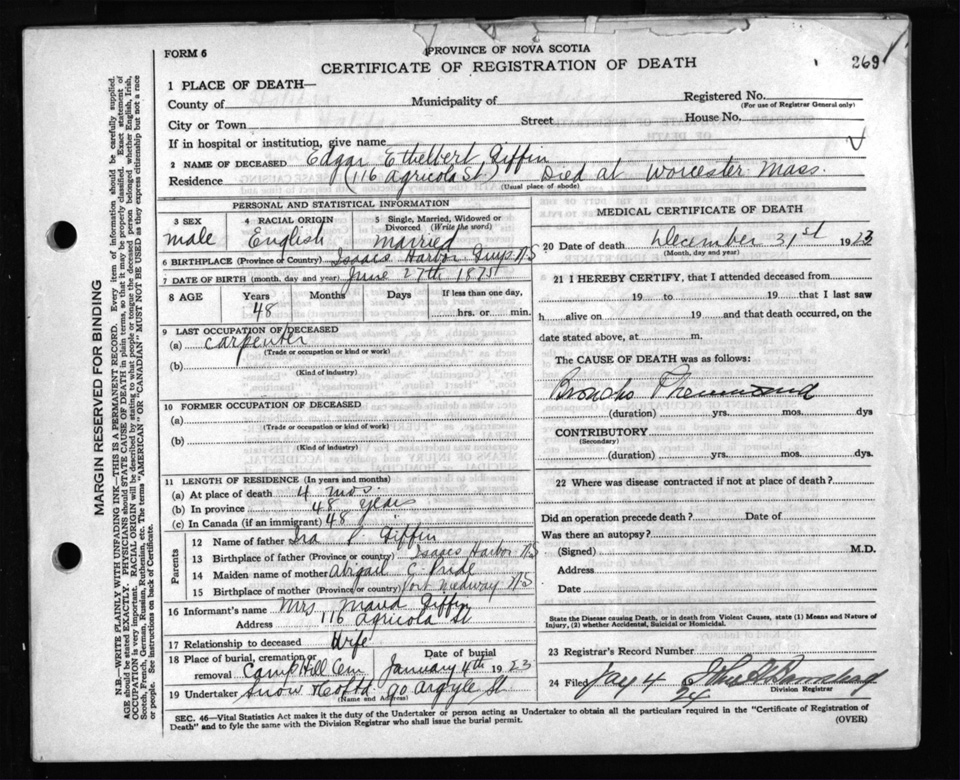 FORM 6
PROVINCE OF NOVA SCOTIA
CERTIFICATE OF REGISTRATION OF DEATH
269
1 PLACE OF DEATH—
County of
Municipality of
Registered No.
(For use of Registrar General only)
City or Town
Street
House No.
If in hospital or institution, give name
2 NAME OF DECEASED Edgar Ethelbert Giffin
Residence (116 Agricola St) Died at Worcester Mass.
(Usual place of abode)
PERSONAL AND STATISTICAL INFORMATION
3 SEX
male
4 RACIAL ORIGIN
English
5 Single, Married, Widowed or Divorced (Write the word)
married
6 BIRTHPLACE (Province or Country) Isaacs Harbor Guys NS
7 DATE OF BIRTH (month, day and year) June 27th 1875
8 AGE
Years
Months
Days
If less than one day,
48
hrs. or min.
9 LAST OCCUPATION OF DECEASED
(a) Carpenter
(Trade or occupation or kind or work)
(b)
(Kind of industry)
10 FORMER OCCUPATION OF DECEASED
(a)
(Trade or occupation or kind or work)
(b)
(Kind of industry)
11 LENGTH OF RESIDENCE (In years and months)
(a) At place of death 4 mos.
(b) In province 48 years
(c) In Canada (if an immigrant) 48
Parents
12 Name of father Ira P. Giffin
13 Birthplace of father (Province or country) Isaacs Harbor NS
14 Maiden name of mother Abigail C. Pride
15 Birthplace of mother (Province or country) Port Medway NS
16 Informant's name Mrs Giffin
Address 116 Agricola St
17 Relationship to deceased Wife
18 Place of burial, cremation or removal Camp Hill Cem
Date of burial
January 4th 1923
19 Undertaker Snow & Co Ltd 90 Argyle St
(Name and Address)
MEDICAL CERTIFICATE OF DEATH
20 Date of death December 31st 1923
(Month, day and year)
21 I HEREBY CERTIFY, that I attended deceased from
19 to 19 that I last saw
h alive on 19 and that death occurred, on the
date stated above, at m.
The CAUSE OF DEATH was as follows:
Broncho Pneumonia
(duration) yrs. mos. dys
CONTRIBUTORY
(Secondary)
(duration) yrs. mos. dys.
22 Where was disease contracted if not at place of death?
Did an operation precede death? Date of
Was there an autopsy?
(Signed) M.D.
Address
Date
State the Disease causing Death, or in death from Violent Causes, state (1) Means and Nature of
Injury, (2) whether Accidental, Suicidal or Homicidal.
23 Registrar's Record Number
24 Filed Jay 4
24
Division Registrar
SEC. 46—Vital Statistics Act makes it the duty of the Undertaker or person acting as Undertaker to obtain all the particulars required in the "Certificate of Registration of
Death" and to fyle the same with the Division Registrar who shall issue the burial permit.
(OVER)
MARGIN RESERVED FOR BINDING
N.B.—WRITE PLAINLY WITH UNFADING INK—THIS IS A PERMANENT RECORD. Every item of information should be carefully supplied.
AGE should be stated EXACTLY. PHYSICIANS should STATE CAUSE OF DEATH in plain terms, so that it may be properly classified. Exact statement of
OCCUPATION is very important. RACIAL ORIGIN will be described by stating to what people or tongue the deceased person belonged whether English, Irish,
Scotch, French, German, Russian, Ruthenian, etc. The terms "AMERICAN" OR "CANADIAN" MUST NOT BE USED as they express citizenship but not a race
or people. See instructions on back of Certificate.